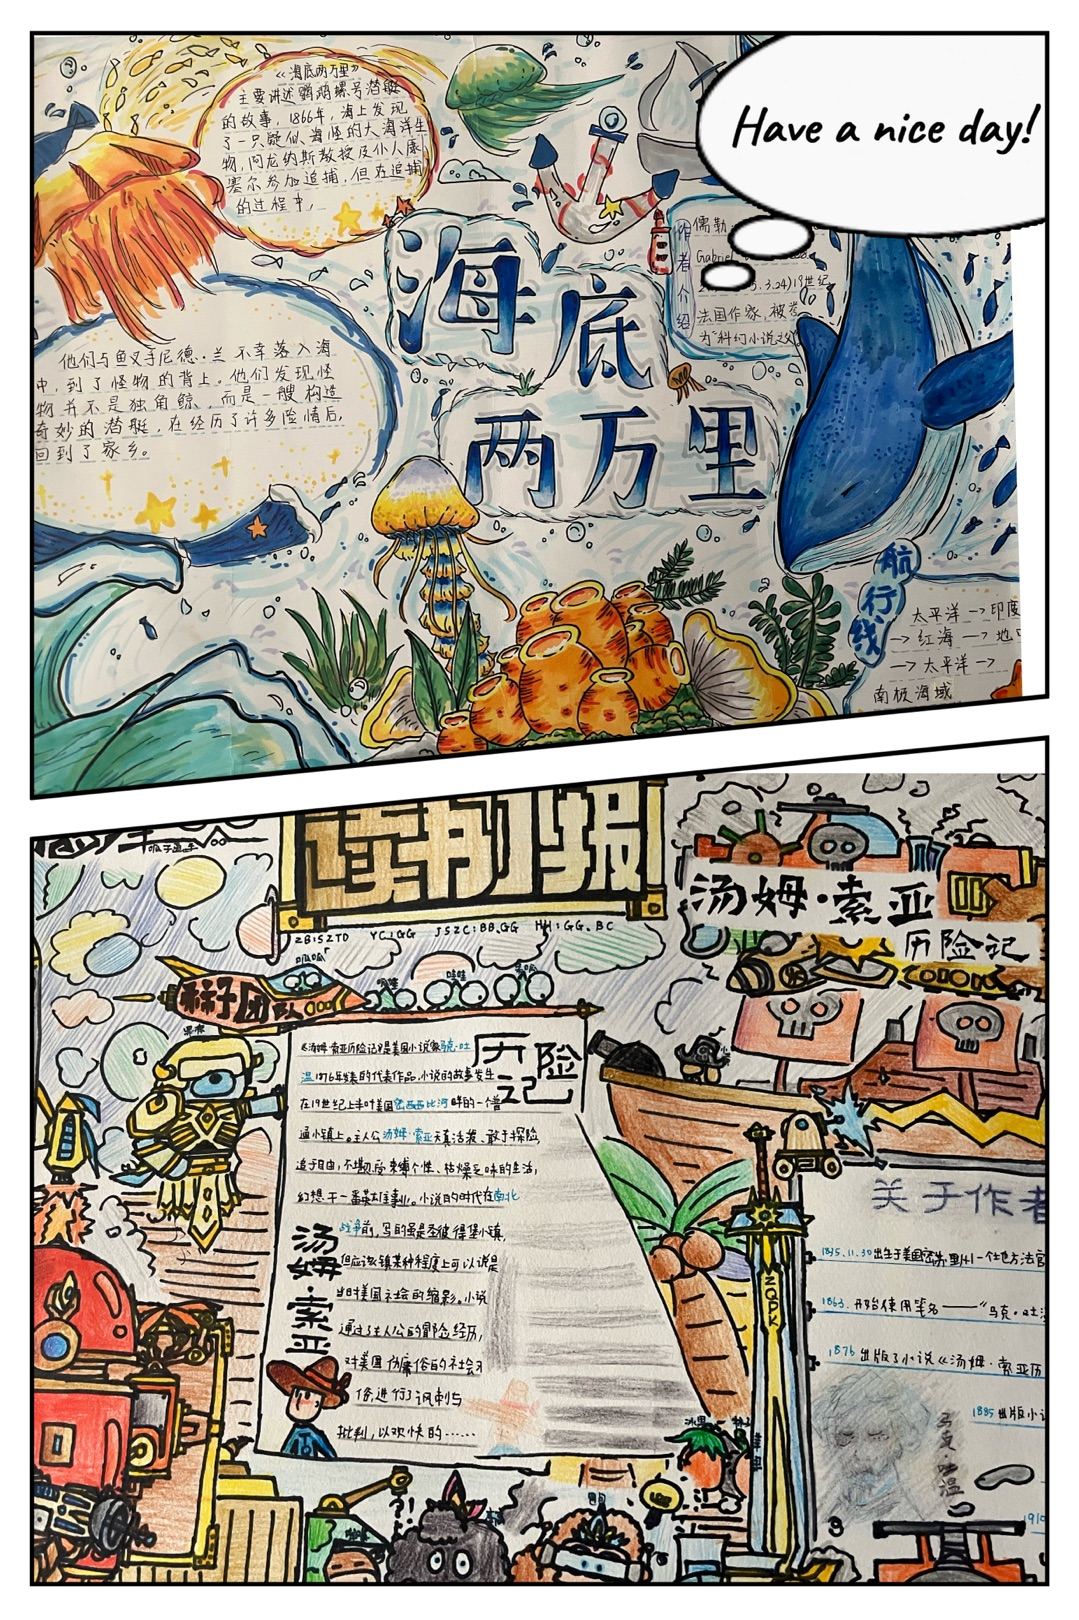 Have a nice day!
《海底两万里》
主要讲述鹦鹉螺号潜艇
的故事，1866年，海上发现
了一只疑似海怪的大海洋生
物，阿龙纳斯教授及仆人康
塞尔参加追捕，但在追捕
的过程中，
海底
两万里
作者介绍
儒勒
Gabriel
3.24)19世纪
法国作家，被誉
为"科幻小说之父"
他们与鱼叉手尼德·兰不幸落入海
中，到了怪物的背上。他们发现怪
物并不是独角鲸，而是一艘构造
奇妙的潜艇，在经历了许多险情后，
回到了家乡。
航行线
太平洋→印度
→红海→地
→太平洋→
南极海域
读书报
ZB:SZTD YC:GG JSZC:BB.GG HH:GG.BC
汤姆·索亚
历险记
团队
历险记
《汤姆·索亚历险记》是美国小说家马克·吐
温1876年发表的代表作品,小说的故事发生
在19世纪上半叶美国密西西比河畔的一个普
通小镇上。主人公汤姆·索亚天真活泼、敢于探险,
追于自由,不堪忍受束缚个性、枯燥乏味的生活,
幻想干一番英雄事业。小说的时代在南北
战争前,写的虽是圣彼得堡小镇,
但应该镇某种程度上可以说是
当时美国社会的缩影。小说
通过了主人公的冒险经历,
对美国伪庸俗的社会习
俗进行了讽刺与
批判,以欢快的……
汤姆·索亚
ZQPK
关于作者
1835.11.30出生于美国密苏里州一个地方法官
1863.开始使用笔名——"马克·吐
1876出版了小说《汤姆·索亚历
1885出版小说
马克吐温
1910